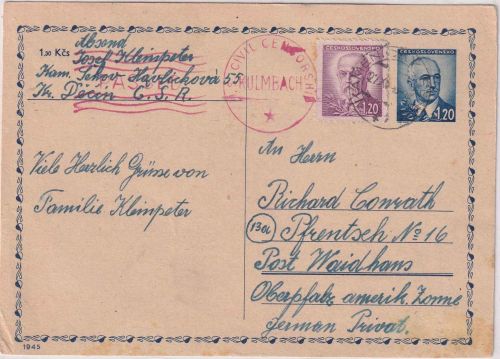 1.50 Kčs
Absend
Josef Kleinpeter
Kam. Šenov Havlíčková 55
Kr. Děčín Č. S. R.
CIVIL CENSORSHIP
KULMBACH
ČESKOSLOVENSKO
1.20
ČESKOSLOVENSKO
1.20
Viele Herzlich Grüsse von
Familie Kleinpeter
An Herrn
Richard Conrath
13a
Pfrentsch No 16
Post Waidhaus
Oberpfalz amerik. Zonne
German Privat.
1945